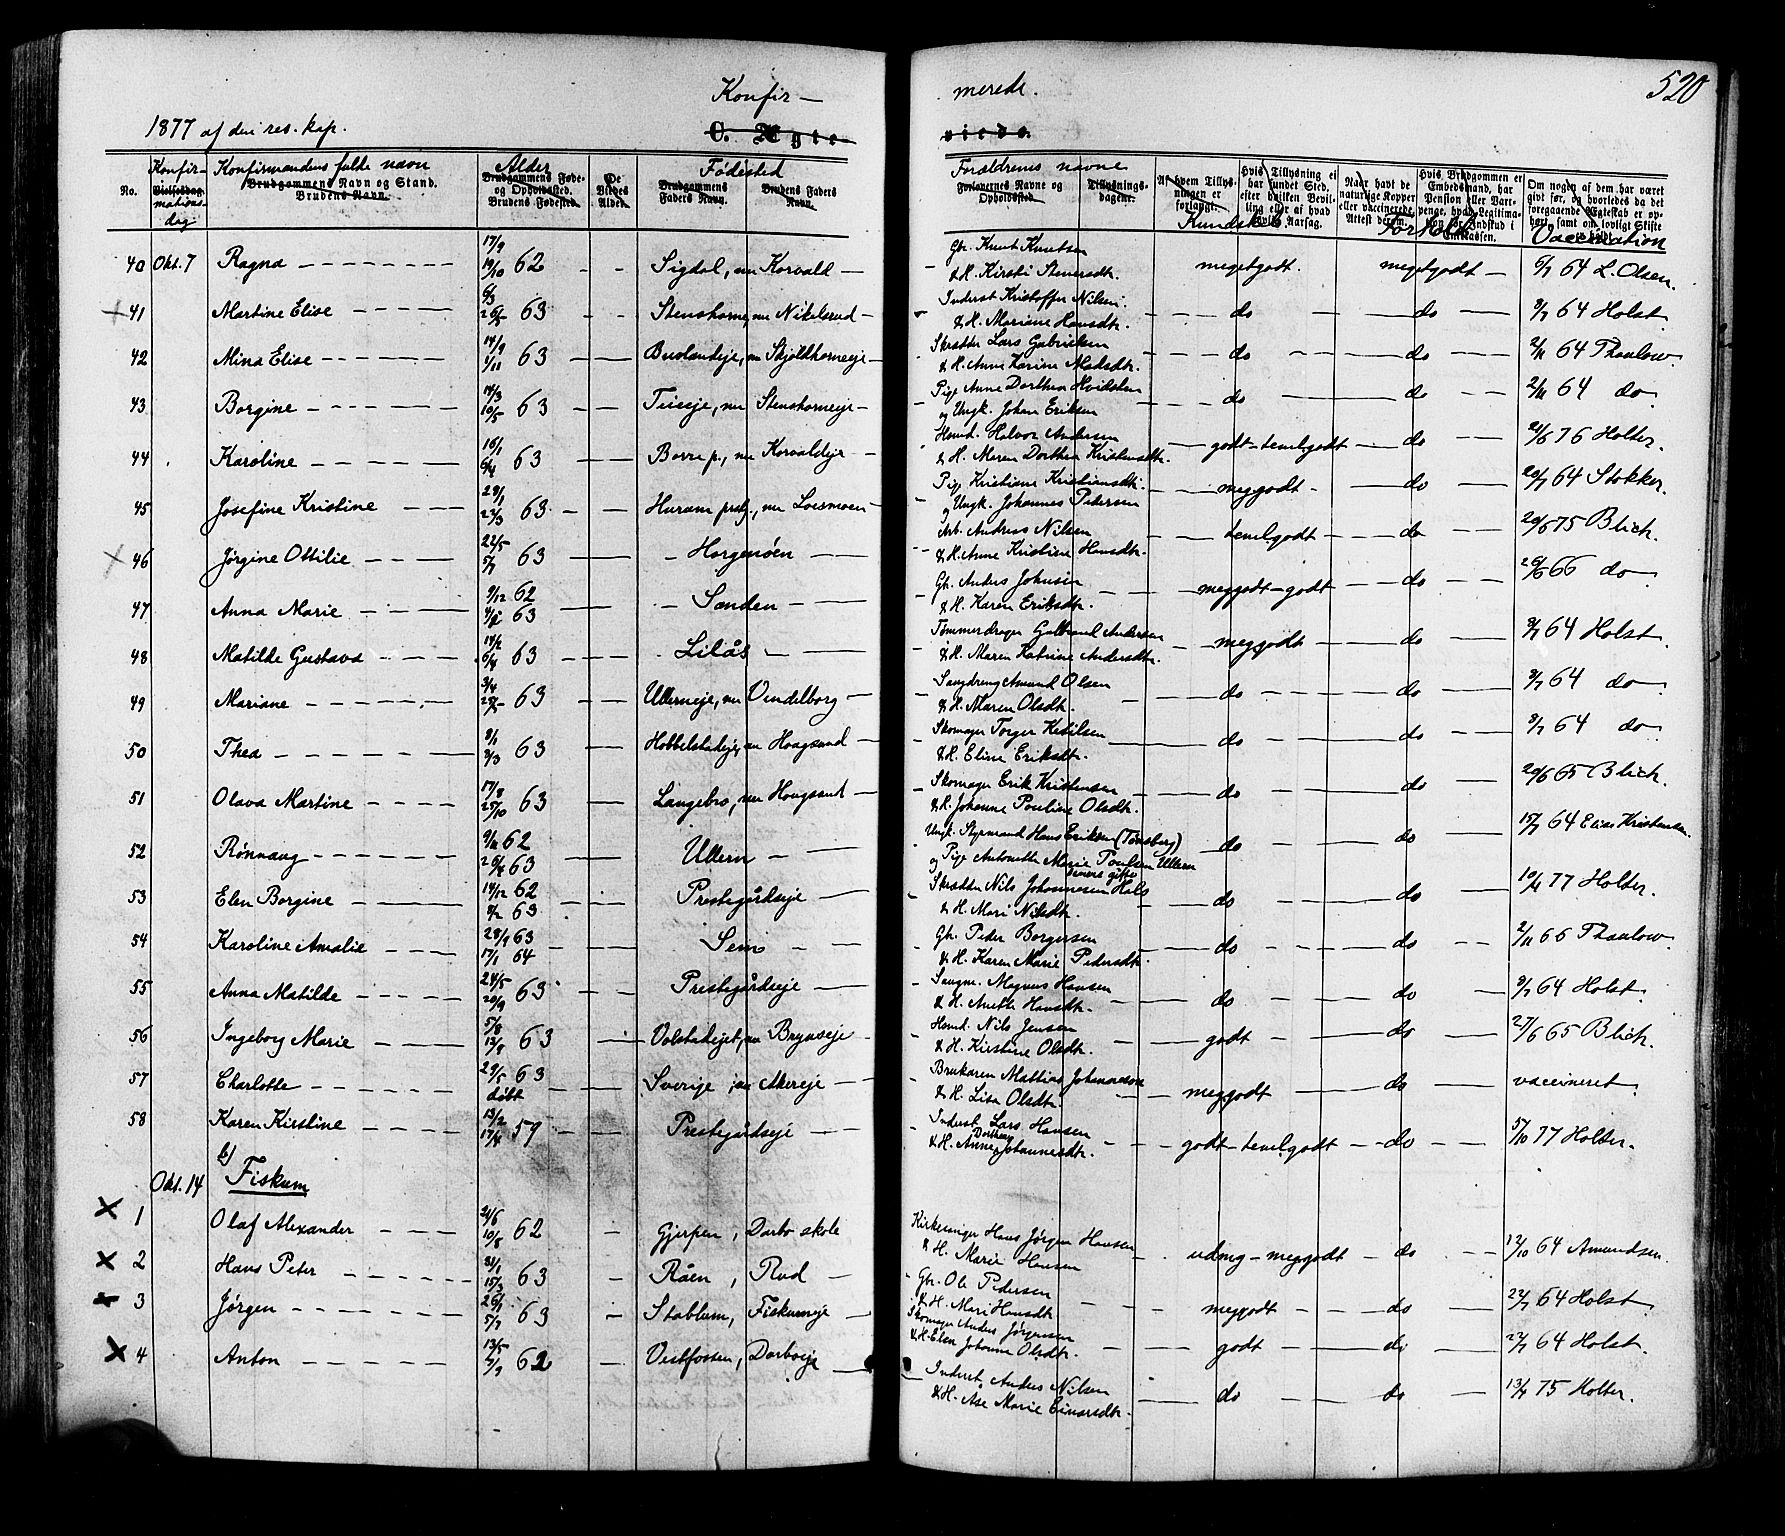 520
Konfir- merede.
1877 af den res. kap.
C. Ægte- viede.
No.
Konfir-mations-dag
Vielsesdag
Konfirmandens fulde navn
Brudgommens Navn og Stand.
Brudens Navn.
Alder
Brudgommens Føde- og Opholdssted.
Brudens Fødested.
De Viedes Alder.
Fødested
Brudgommens Faders Navn.
Brudens Faders Navn.
Forældrenes navne
Forlovernes Navne og Opholdssted.
Tillysnings-dagene.
Af hvem Tillysningen er forlangt.
Hvis Tillysning ei har fundet Sted, efter hvilken Bevilling eller af hvad Aarsag.
Kundskab
Naar havt de naturlige Kopper eller vaccinerede, Attest derom.
Forhold
Om nogen af dem har været gift før, og hvorledes da det foregaaende Ægteskab er ophørt, samt om lovligt Skifte
Vaccination
40 Okt. 7 Ragna 17/9 19/10 62 Sigdal, nu Korvald Gbr. Knut Knutsen & H. Kirsti Steversdtr. megetgodt. megetgodt 6/7 64 L. Olsen.
41 Martine Elise 6/3 26/5 63 Stenshorne, nu Nikelsrud Inderst Kristoffer Nilsen & H. Mariane Hansdtr. do do 8/7 64 Holst
42 Mina Elise 14/9 1/11 63 nu Skjoldhorneeje Skrædder Lars Gabrielsen & H. Anne Karine Madsdtr. do do 2/11 64 Thaulow
43 Borgine 14/3 10/5 63 nu Stenshorneeje Pige Anne Dorthea og Ungk. Johan Eriksen do do 2/11 64 do
44 Karoline 16/1 6/4 63 Borre p., nu Korvaldeje Husmd. Halvor Andersen & H. Maren Dorthea Kristensdtr. godt-temelgodt do 21/6 76 Holter.
45 Josefine Kristine 29/1 22/3 63 Hurum prstg., nu Loesmoen Pige Kristiane Kristiansdtr. og Ungk. Johannes Pedersen meggodt do 20/7 64 Stokker.
46 Jørgine Ottilie 22/5 5/7 63 Horgenøen Arb. Andreas Nilsen & H. Anne Kristine Hansdtr. temelgodt do 20/6 75 Blich
47 Anna Marie 9/12 62 63 Sanden Gbr. Anders Johnsen & H. Karen Eriksdtr. meggodt-godt do 20/6 66 do
48 Matilde Gustava 14/2 6/4 63 Lilås Tømmerdreger Gulbrand Andersen & H. Maren Katrine Andersdtr. meggodt do 8/7 64 Holst
49 Mariane 3/4 63 Ullerneje, nu Vendelborg Sangdreng Amund Olsen & H. Maren Olsdtr. do do 8/7 64 do
50 Thea 8/1 8/3 63 Hobbelstadeje, nu Hougsund Skomager Torger Ketilsen & H. Eline Eriksdtr. do do 8/7 64 do
51 Olava Martine 17/8 25/10 63 Langebro, nu Hougsund Skomager Erik Kristensen & H. Johanne Pouline Olsdtr. do do 20/6 65 Blich
52 Rønnaug 9/11 62 63 Ullern Ungk. Styrmand Hans Eriksen (Tønsberg) og Pige Antonette Marie Poulsen Ullern do do 15/7 64 Elias Kristensen
53 Elen Borgine 14/12 62 8/2 63 Prestegårdseje Skrædder Nils Johannesen Hals & H. Mari Nilsdtr. do do 10/4 77 Holter.
54 Karoline Amalie 28/9 63 17/1 64 Sem Gbr. Peder Borgersen & H. Karen Marie Pedersdtr. do do 2/11 66 Thaulow
55 Anna Matilde 24/5 20/9 63 Prestegårdseje Magnus Hansen & H. Anette Hansdtr. do do 9/7 64 Holst.
56 Ingeborg Marie 5/8 13/9 63 Volstadejet, nu Brynseje Husmd. Nils Jensen & H. Kirstine Olsdtr. godt do 27/6 65 Blich
57 Charlotte 29/5 63 døbt Sverige, nu Akereje Brukaren Mattias Johannesen & H. Lisa Olsdtr. meggodt do vaccineret
58 Karen Kirstine 13/2 17/4 59 Prestegårdseje Inderst Lars Hansen & H. Anne Dorthea Johannesdtr. godt-temelgodt do 5/10 77 Holter.
b)
Okt. 14 Fiskum
1 Olaf Alexander 24/6 10/8 62 Gjerpen, Darbo skole Kirkesanger Hans Jørgen Hansen & H. Marie Hansen udmg-meggodt do 12/10 64 Amundsen
2 Hans Peter 31/1 15/3 63 Råen, Rud Gbr. Ole Pedersen & H. Mari Hansdtr. meggodt do 22/7 64 Holst
3 Jørgen 26/1 5/7 63 Stablum, Fiskumeje Skomager Anders Jørgensen & H. Elen Johanne Olsdtr. godt do 22/7 64 Holst
4 Anton 13/5 7/9 62 Vestfossen, Darboeje Inderst Anders Nilsen & H. Åse Marie Einarsdtr. do do 13/9 75 Holter.